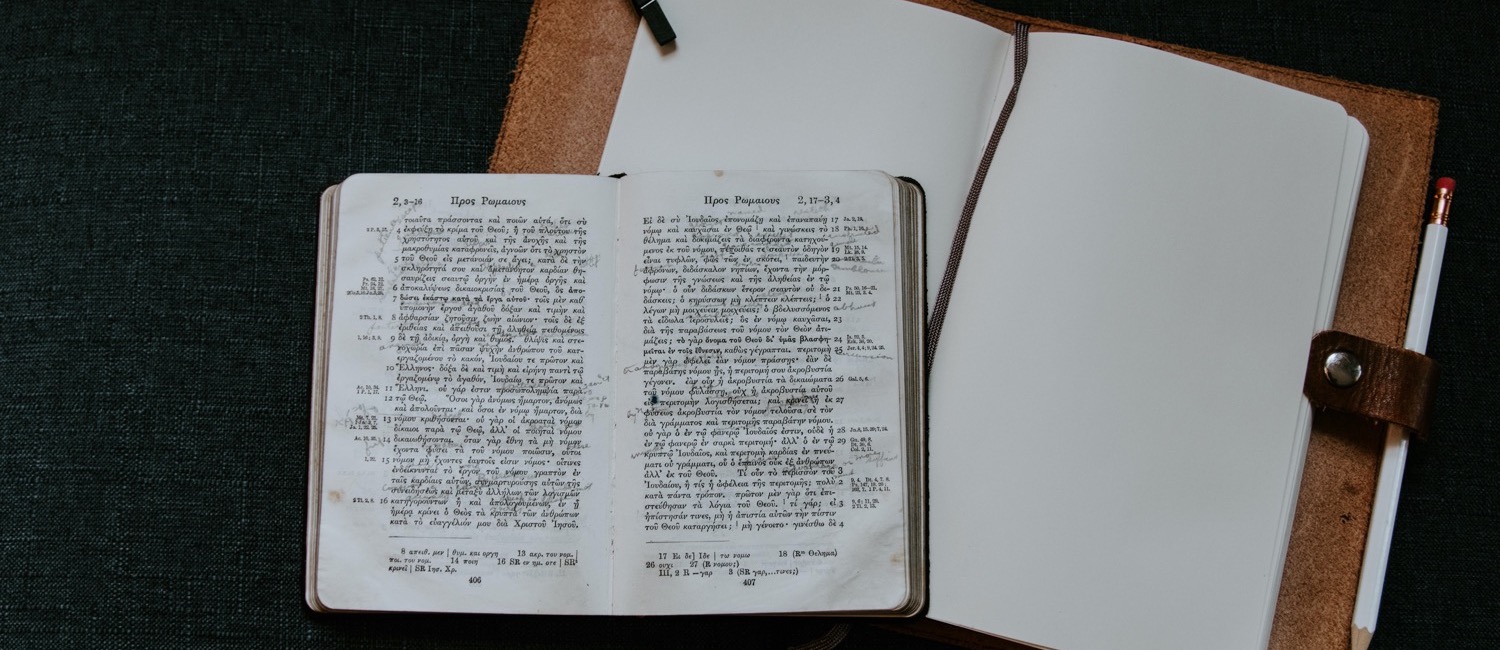 2, 3–16 Προς Ρωμαιους
τοιαῦτα πράσσοντας καὶ ποιῶν αὐτά, ὅτι σὺ
4 ἐκφεύξῃ τὸ κρίμα τοῦ Θεοῦ; ἢ τοῦ πλούτου τῆς
χρηστότητος αὐτοῦ καὶ τῆς ἀνοχῆς καὶ τῆς
μακροθυμίας καταφρονεῖς, ἀγνοῶν ὅτι τὸ χρηστὸν
5 τοῦ Θεοῦ εἰς μετάνοιάν σε ἄγει; κατὰ δὲ τὴν
σκληρότητά σου καὶ ἀμετανόητον καρδίαν θη-
σαυρίζεις σεαυτῷ ὀργὴν ἐν ἡμέρᾳ ὀργῆς καὶ
6 ἀποκαλύψεως δικαιοκρισίας τοῦ Θεοῦ, ὃς ἀπο-
7 δώσει ἑκάστῳ κατὰ τὰ ἔργα αὐτοῦ· τοῖς μὲν καθ᾽
ὑπομονὴν ἔργου ἀγαθοῦ δόξαν καὶ τιμὴν καὶ
8 ἀφθαρσίαν ζητοῦσιν ζωὴν αἰώνιον· τοῖς δὲ ἐξ
ἐριθείας καὶ ἀπειθοῦσι τῇ ἀληθείᾳ πειθομένοις
9 δὲ τῇ ἀδικίᾳ, ὀργὴ καὶ θυμός. θλῖψις καὶ στε-
νοχωρία ἐπὶ πᾶσαν ψυχὴν ἀνθρώπου τοῦ κατ-
εργαζομένου τὸ κακόν, Ἰουδαίου τε πρῶτον καὶ
10 Ἕλληνος· δόξα δὲ καὶ τιμὴ καὶ εἰρήνη παντὶ τῷ
ἐργαζομένῳ τὸ ἀγαθόν, Ἰουδαίῳ τε πρῶτον καὶ
11 Ἕλληνι. οὐ γάρ ἐστιν προσωπολημψία παρὰ
12 τῷ Θεῷ. Ὅσοι γὰρ ἀνόμως ἥμαρτον, ἀνόμως
καὶ ἀπολοῦνται· καὶ ὅσοι ἐν νόμῳ ἥμαρτον, διὰ
13 νόμου κριθήσονται· οὐ γὰρ οἱ ἀκροαταὶ νόμου
δίκαιοι παρὰ τῷ Θεῷ, ἀλλ᾽ οἱ ποιηταὶ νόμου
14 δικαιωθήσονται. ὅταν γὰρ ἔθνη τὰ μὴ νόμον
ἔχοντα φύσει τὰ τοῦ νόμου ποιῶσιν, οὗτοι
15 νόμον μὴ ἔχοντες ἑαυτοῖς εἰσιν νόμος· οἵτινες
ἐνδείκνυνται τὸ ἔργον τοῦ νόμου γραπτὸν ἐν
ταῖς καρδίαις αὐτῶν, συμμαρτυρούσης αὐτῶν τῆς
συνειδήσεως καὶ μεταξὺ ἀλλήλων τῶν λογισμῶν
16 κατηγορούντων ἢ καὶ ἀπολογουμένων, ἐν ᾗ
ἡμέρᾳ κρίνει ὁ Θεὸς τὰ κρυπτὰ τῶν ἀνθρώπων
κατὰ τὸ εὐαγγέλιόν μου διὰ Χριστοῦ Ἰησοῦ.
8 απειθ. μεν | θυμ. και οργη 13 ακρ. του νομ. |
ποι. του νομ. 14 ποιη 16 SR εν ημ. οτε | SR
κρινεῖ | SR Ιησ. Χρ.
406
Προς Ρωμαιους 2, 17–3, 4
Εἰ δὲ σὺ Ἰουδαῖος ἐπονομάζῃ καὶ ἐπαναπαύῃ 17
νόμῳ καὶ καυχᾶσαι ἐν Θεῷ | καὶ γινώσκεις τὸ 18
θέλημα καὶ δοκιμάζεις τὰ διαφέροντα κατηχού-
μενος ἐκ τοῦ νόμου, πέποιθάς τε σεαυτὸν ὁδηγὸν 19
εἶναι τυφλῶν, φῶς τῶν ἐν σκότει, | παιδευτὴν 20
ἀφρόνων, διδάσκαλον νηπίων, ἔχοντα τὴν μόρ-
φωσιν τῆς γνώσεως καὶ τῆς ἀληθείας ἐν τῷ
νόμῳ· | ὁ οὖν διδάσκων ἕτερον σεαυτὸν οὐ δι- 21
δάσκεις; ὁ κηρύσσων μὴ κλέπτειν κλέπτεις; | ὁ 22
λέγων μὴ μοιχεύειν μοιχεύεις; ὁ βδελυσσόμενος
τὰ εἴδωλα ἱεροσυλεῖς; ὃς ἐν νόμῳ καυχᾶσαι, 23
διὰ τῆς παραβάσεως τοῦ νόμου τὸν Θεὸν ἀτι-
μάζεις; τὸ γὰρ ὄνομα τοῦ Θεοῦ δι᾽ ὑμᾶς βλασφη- 24
μεῖται ἐν τοῖς ἔθνεσιν, καθὼς γέγραπται. περιτομὴ 25
μὲν γὰρ ὠφελεῖ ἐὰν νόμον πράσσῃς· ἐὰν δὲ
παραβάτης νόμου ᾖς, ἡ περιτομή σου ἀκροβυστία
γέγονεν. ἐὰν οὖν ἡ ἀκροβυστία τὰ δικαιώματα 26
τοῦ νόμου φυλάσσῃ, οὐχ ἡ ἀκροβυστία αὐτοῦ
εἰς περιτομὴν λογισθήσεται; καὶ κρινεῖ ἡ ἐκ 27
φύσεως ἀκροβυστία τὸν νόμον τελοῦσα σὲ τὸν
διὰ γράμματος καὶ περιτομῆς παραβάτην νόμου.
οὐ γὰρ ὁ ἐν τῷ φανερῷ Ἰουδαῖός ἐστιν, οὐδὲ ἡ 28
ἐν τῷ φανερῷ ἐν σαρκὶ περιτομή· ἀλλ᾽ ὁ ἐν τῷ 29
κρυπτῷ Ἰουδαῖος, καὶ περιτομὴ καρδίας ἐν πνεύ-
ματι οὐ γράμματι, οὗ ὁ ἔπαινος οὐκ ἐξ ἀνθρώπων
ἀλλ᾽ ἐκ τοῦ Θεοῦ. Τί οὖν τὸ περισσὸν τοῦ 3
Ἰουδαίου, ἢ τίς ἡ ὠφέλεια τῆς περιτομῆς; πολὺ 2
κατὰ πάντα τρόπον. πρῶτον μὲν γὰρ ὅτι ἐπι-
στεύθησαν τὰ λόγια τοῦ Θεοῦ. | τί γάρ; εἰ 3
ἠπίστησάν τινες, μὴ ἡ ἀπιστία αὐτῶν τὴν πίστιν
τοῦ Θεοῦ καταργήσει; | μὴ γένοιτο· γινέσθω δὲ 4
17 Ει δε] Ιδε | τω νομω 18 (Rᵐ Θελημα)
26 ουχι 27 (R νομου;)
III, 2 R —γαρ 3 (SR γαρ,...τινες;)
407